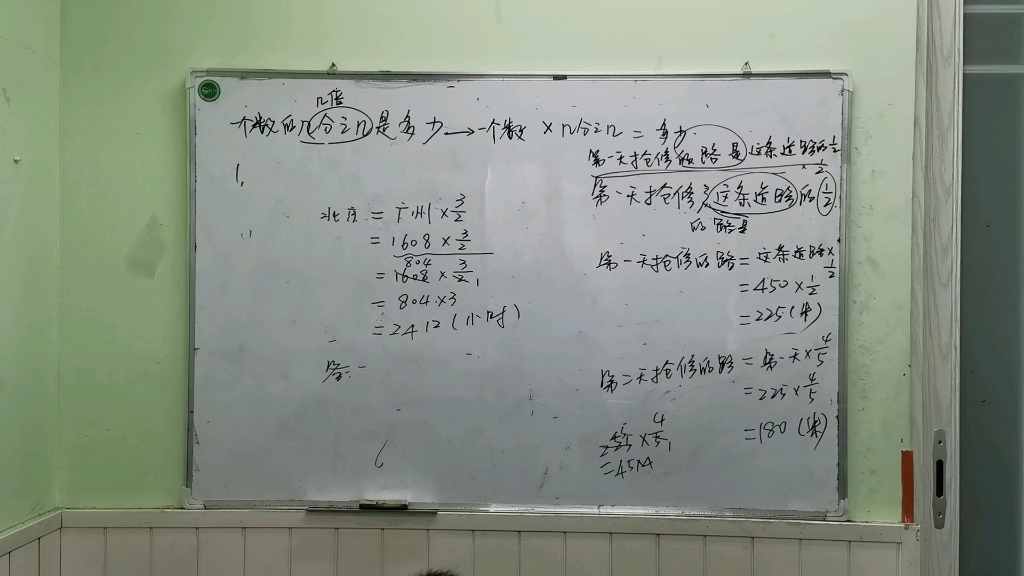 几倍
一个数的几分之几是多少→一个数 × 几分之几 = 多少
1.
北京 = 广州 × 3/2
= 1608 × 3/2
804
= 1608 × 3/2 1
= 804 × 3
= 2412 (小时)
答:
第一天抢修的路是这条道路的1/2
× 1/2
第一天抢修 这条道路的 1/2
的路是
第一天抢修的路 = 这条道路 × 1/2
= 450 × 1/2
= 225 (米)
第二天抢修的路 = 第一天 × 4/5
= 225 × 4/5
= 180 (米)
225 × 4/5 1
= 45×4